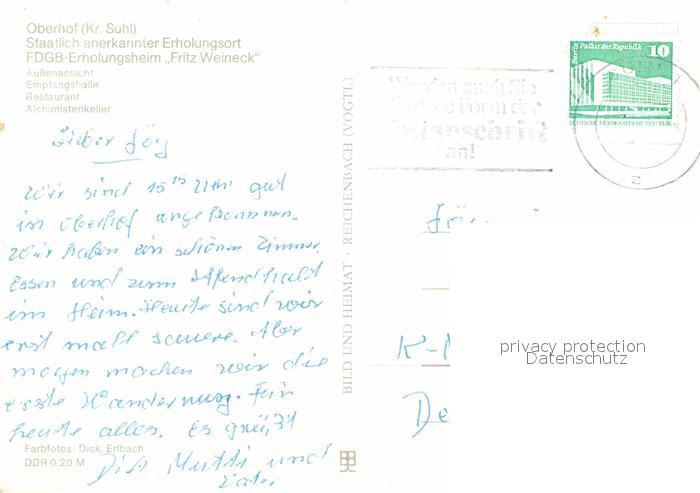 Oberhof (Kr. Suhl)
Staatlich anerkannter Erholungsort
FDGB-Erholungsheim „Fritz Weineck“
Außenansicht
Empfangshalle
Restaurant
Alchimistenkeller
Lieber Jörg
Wir sind 15 15 Uhr gut
in Oberhof angekommen.
Wir haben ein schönes Zimmer.
Essen und zum Aufenthalt
im Heim. Heute sind wir
erst mall
Aber
morgen machen wir die
erste Wanderung. Für
heute alles. Es grüßt
Dich Mutti und
Vater
Farbfotos: Dick, Erlbach
DDR 0.20 M
BILD UND HEIMAT · REICHENBACH (VOGTL)
Werden auch Sie
Form der
Postanschrift
an!
Berlin Palast der Republik 10
DEUTSCHE DEMOKRATISCHE REPUBLIK
Z
K-
De
privacy protection
Datenschutz